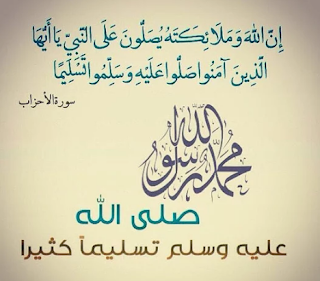 إِنَّ اللهَ وَمَلَائِكَتَهُ يُصَلُّونَ عَلَى النَّبِيِّ يَا أَيُّهَا
الَّذِينَ آمَنُوا صَلُّوا عَلَيْهِ وَسَلِّمُوا تَسْلِيمًا
سورة الأحزاب
محمد رسول الله
صلى الله
عليه وسلم تسليماً كثيرا